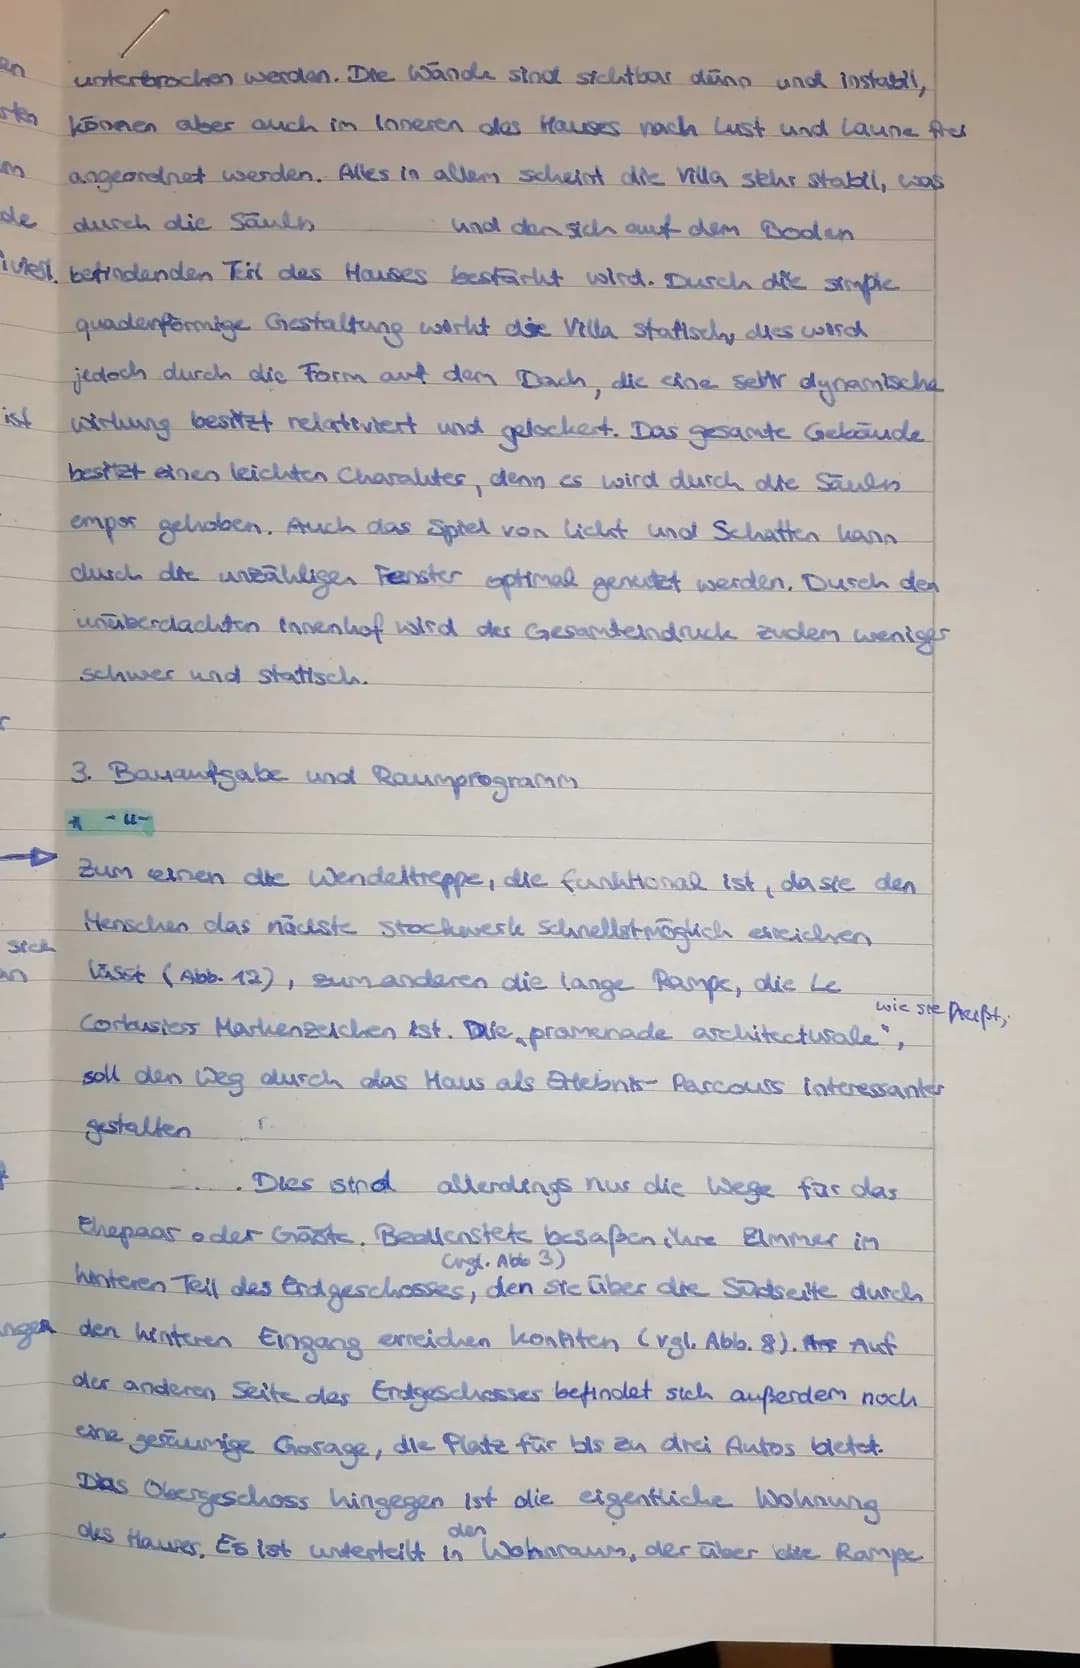 unterbrochen werden. Die Wände sind sichtbar dünn und instabil,
können aber auch im Inneren des Hauses nach Lust und Laune frei
angeordnet werden. Alles in allem scheint die Villa sehr stabil, was
durch die Säulen und den sich auf dem Boden
befindenden Teil des Hauses bestärkt wird. Durch die simple
quaderförmige Gestaltung wirkt die Villa statisch, dies wird
jedoch durch die Form auf dem Dach, die eine sehr dynamische
Wirkung besitzt relativiert und gelockert. Das gesamte Gebäude
besitzt einen leichten Charakter, denn es wird durch die Säulen
empor gehoben. Auch das Spiel von Licht und Schatten kann
durch die unzähligen Fenster optimal genutzt werden. Durch den
unüberdachten Innenhof wird der Gesamteindruck zudem weniger
schwer und statisch.
3. Bauaufgabe und Raumprogramm
* -u-
Zum einen die Wendeltreppe, die funktional ist, da sie den
Menschen das nächste Stockwerk schnellstmöglich erreichen
lässt (Abb. 12), zum anderen die lange Rampe, die Le
Corbusiers Markenzeichen ist. Die „promenade architecturale", wie sie heißt,
soll den Weg durch das Haus als Erlebnis-Parcours interessanter
gestalten
. Dies sind allerdings nur die Wege für das
Ehepaar oder Gäste. Bedienstete besaßen ihre Zimmer im
(vgl. Abb 3)
hinteren Teil des Erdgeschosses, den sie über die Südseite durch
den hinteren Eingang erreichen konnten (vgl. Abb. 8). Auf
der anderen Seite des Erdgeschosses befindet sich außerdem noch
eine geräumige Garage, die Platz für bis zu drei Autos bietet.
Das Obergeschoss hingegen ist die eigentliche Wohnung
des Hauses. Es ist unterteilt in den Wohnraum, der über die Rampe